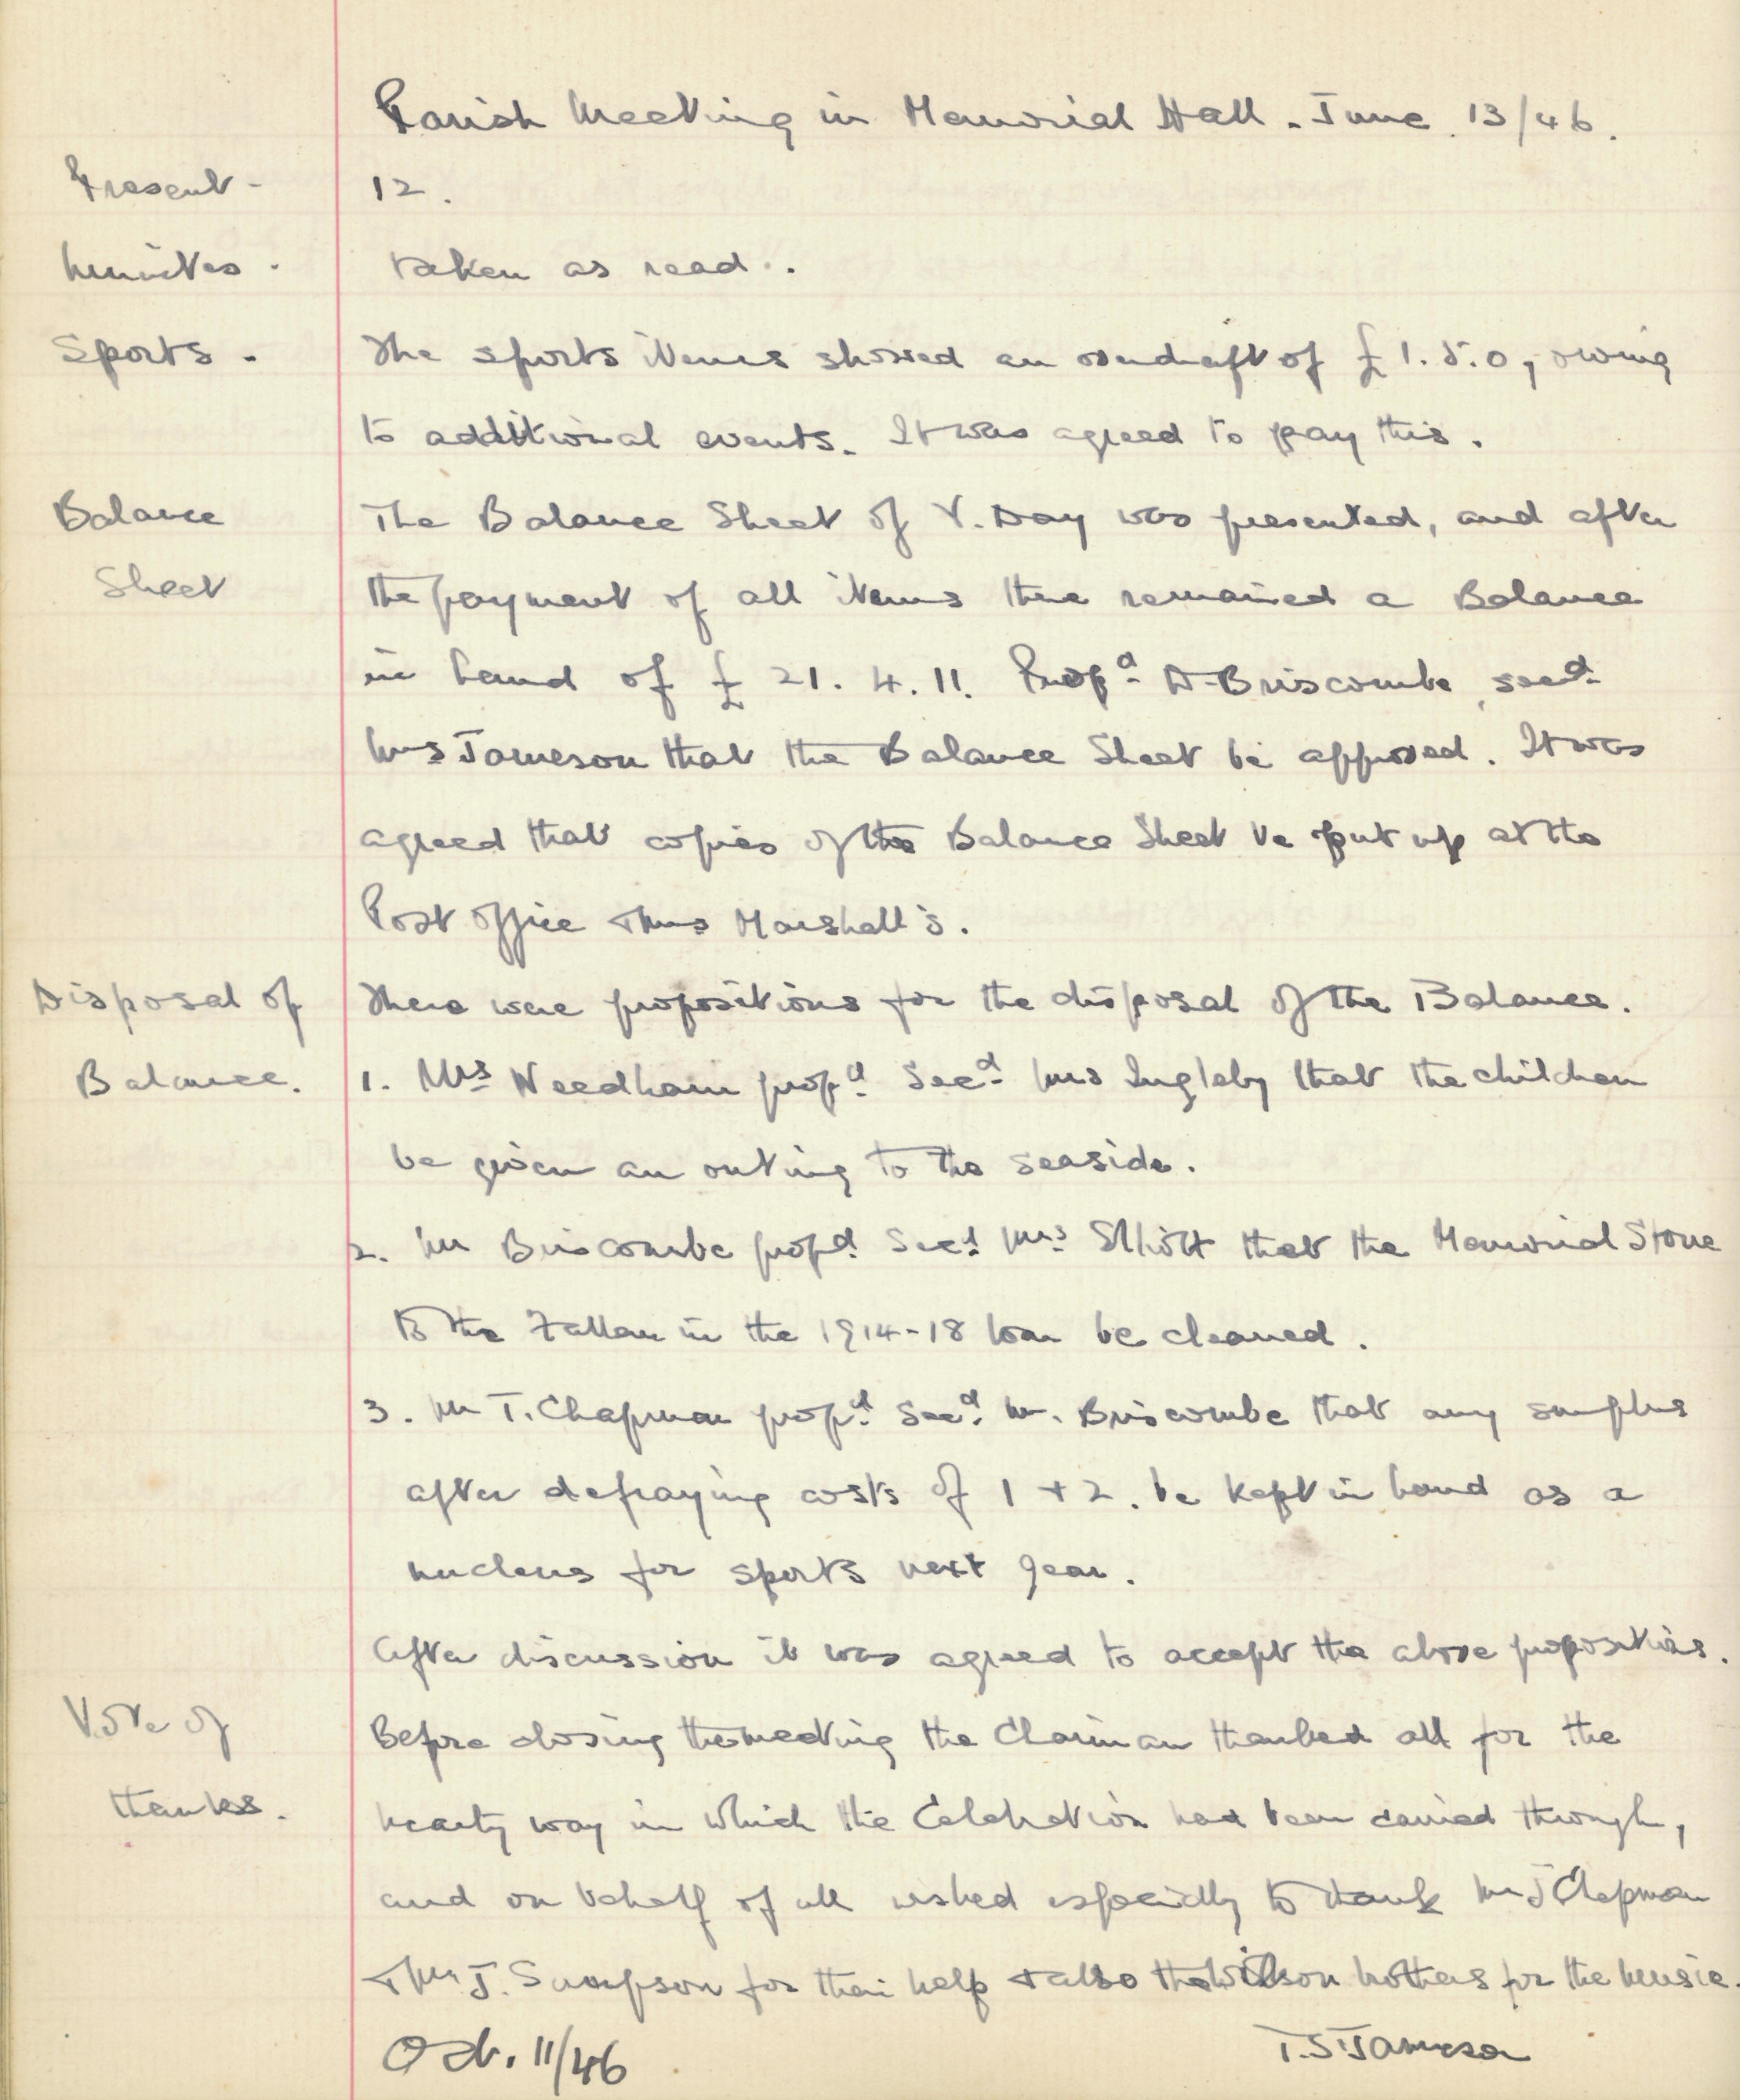 Parish Meeting in Memorial Hall. June. 13/46.
Present - 12.
Minutes. taken as read.
Sports. The sports items showed an overdraft of £1.5.0, owing
to additional events. It was agreed to pay this.
Balance The Balance Sheet of V. Day was presented, and after
Sheet the payment of all items there remained a Balance
in hand of £21.4.11. Propd D. Briscombe, secd
Mrs Jameson that the Balance Sheet be approved. It was
agreed that copies of the Balance Sheet be put up at the
Post Office + Mrs Marshall's.
Disposal of There were propositions for the disposal of the Balance.
Balance. 1. Mrs Needham propd secd Mrs Ingleby that the children
be given an outing to the seaside.
2. Mr Briscombe propd secd Mrs Elliott that the Memorial Stone
to the Fallen in the 1914-18 War be cleaned.
3. Mr T. Chapman propd secd Mr. Briscombe that any surplus
after defraying costs of 1 + 2. be kept in hand as a
nucleus for sports next year.
After discussion it was agreed to accept the above propositions.
Vote of Before closing the meeting the Chairman thanked all for the
thanks. hearty way in which the Celebration had been carried through,
and on behalf of all wished especially to thank Mr J Chapman
+ Mr J. Sampson for their help + also the Wilson brothers for the Music.
Oct. 11/46 T.S. Jameson